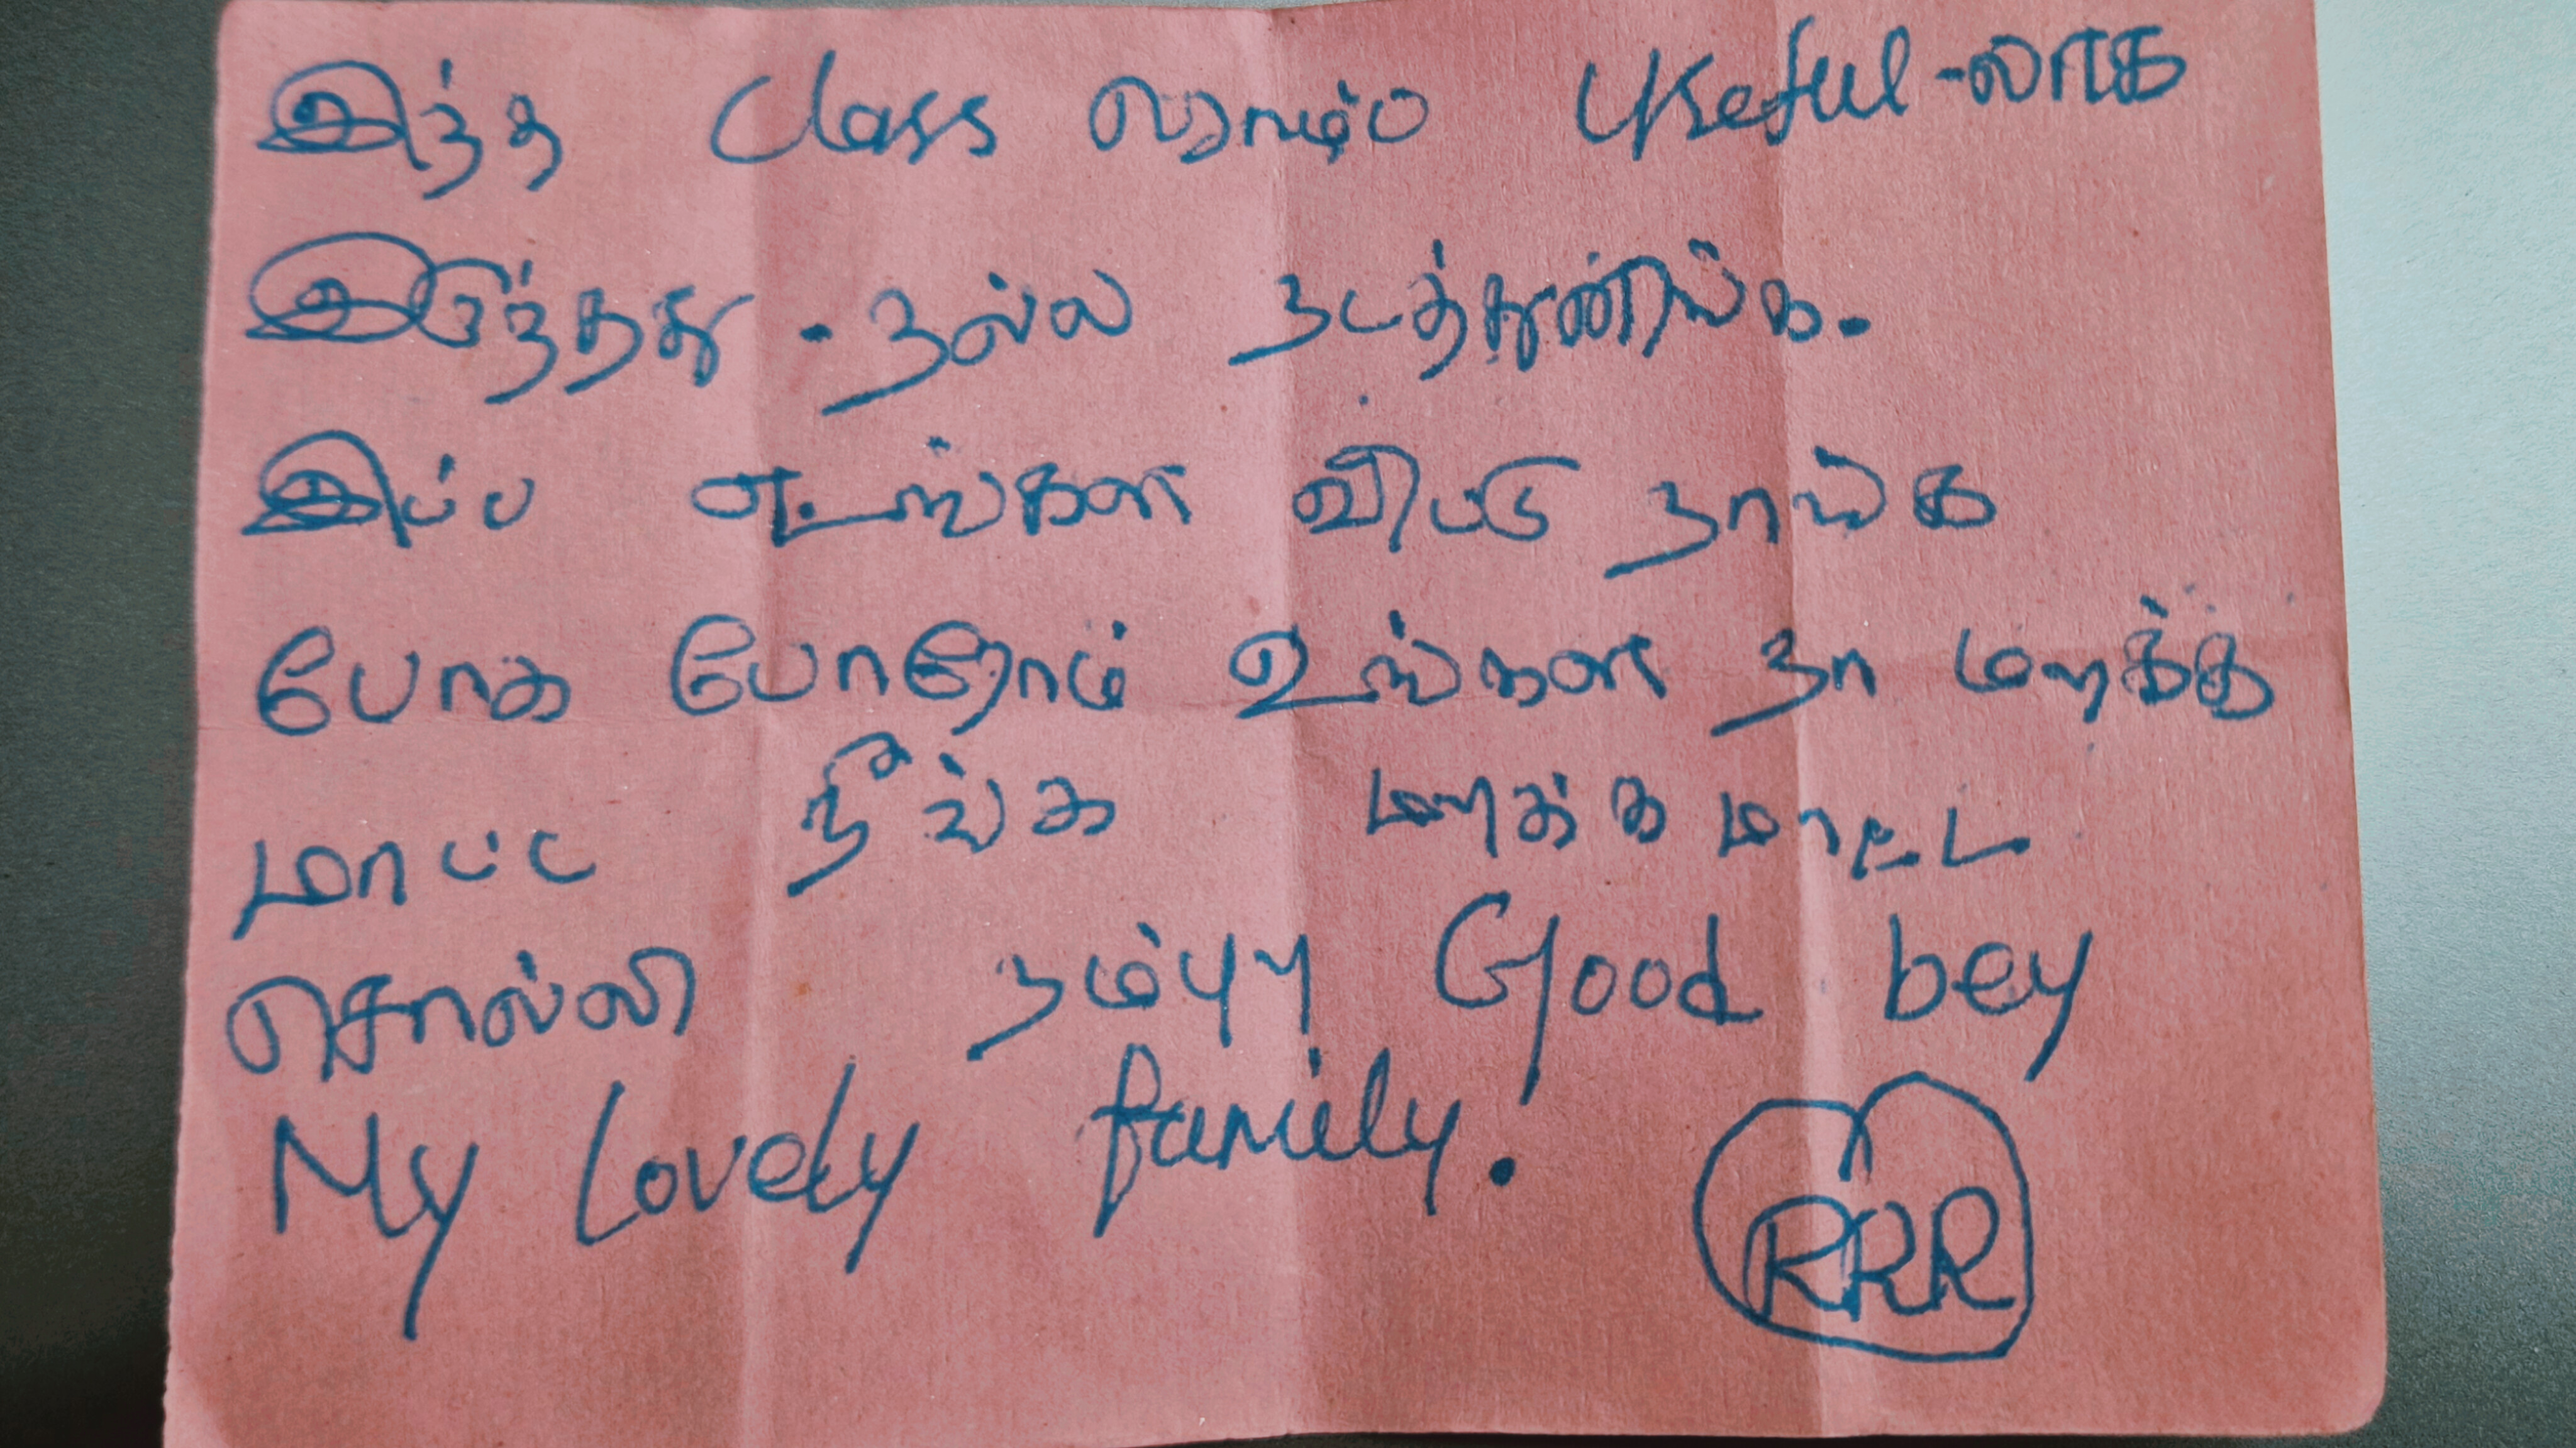 இந்த Class ரொம்ப Useful-லாக
இருந்தது. நல்ல நடத்துனிங்க.
இப்ப உங்கள விட்டு நாங்க
போக போறோம் உங்கள நா மறக்க
மாட்ட நீங்க மறக்க மாட்ட
சொல்லி நம்புற Good bey
My Lovely family.
RRR